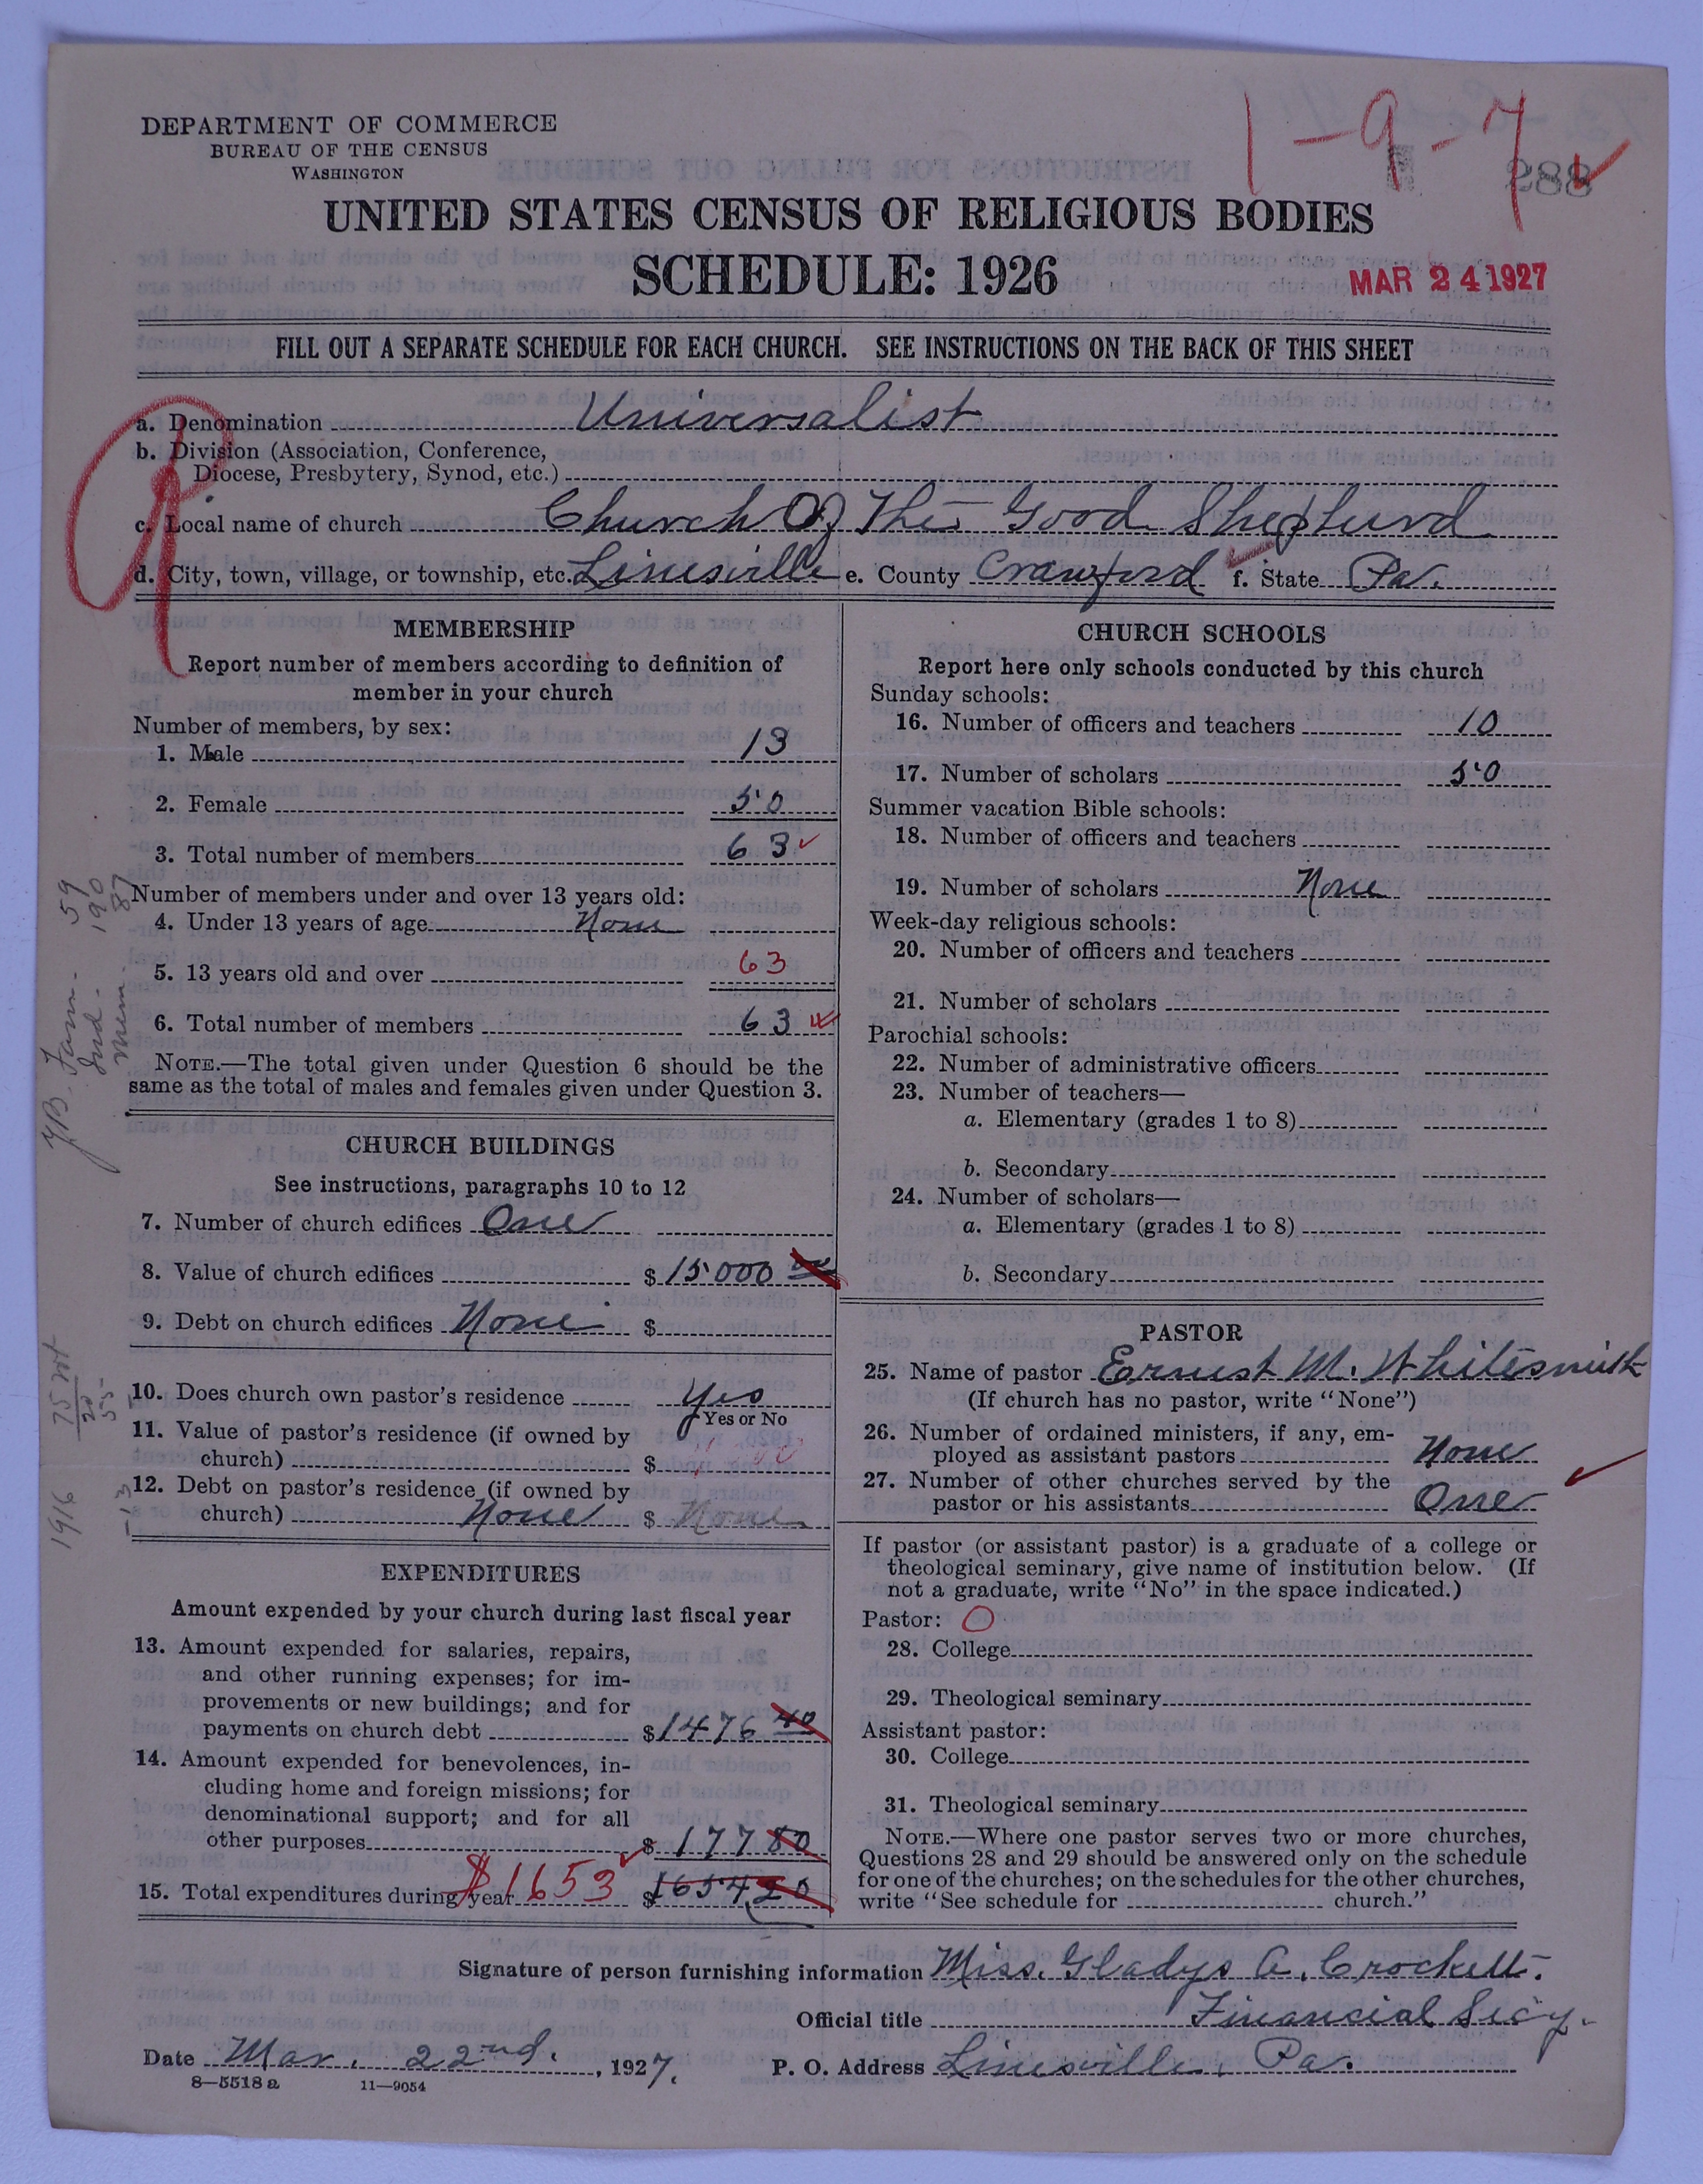 DEPARTMENT OF COMMERCE
BUREAU OF THE CENSUS
WASHINGTON
1-9-7
288
UNITED STATES CENSUS OF RELIGIOUS BODIES
SCHEDULE: 1926
MAR 24 1927
FILL OUT A SEPARATE SCHEDULE FOR EACH CHURCH. SEE INSTRUCTIONS ON THE BACK OF THIS SHEET
a. Denomination Universalist
b. Division (Association, Conference,
Diocese, Presbytery, Synod, etc.)
c. Local name of church Church Of The Good Shepherd
d. City, town, village, or township, etc. Linesville e. County Crawford f. State Pa.
MEMBERSHIP
Report number of members according to definition of
member in your church
Number of members, by sex:
1. Male 13
2. Female 50
3. Total number of members 63
Number of members under and over 13 years old:
4. Under 13 years of age None
5. 13 years old and over 63
6. Total number of members 63
NOTE.—The total given under Question 6 should be the
same as the total of males and females given under Question 3.
YB. Fam. - 59
Ind. - 190
Mem. 87
CHURCH BUILDINGS
See instructions, paragraphs 10 to 12
7. Number of church edifices One
8. Value of church edifices $ 15000 00
9. Debt on church edifices None $
10. Does church own pastor's residence Yes
Yes or No
11. Value of pastor's residence (if owned by
church) $
12. Debt on pastor's residence (if owned by
church) None $ None
1916
EXPENDITURES
Amount expended by your church during last fiscal year
13. Amount expended for salaries, repairs,
and other running expenses; for im-
provements or new buildings; and for
payments on church debt $ 1476 40
14. Amount expended for benevolences, in-
cluding home and foreign missions; for
denominational support; and for all
other purposes $ 177 80
15. Total expenditures during year $1653 $ 1654 20
CHURCH SCHOOLS
Report here only schools conducted by this church
Sunday schools:
16. Number of officers and teachers 10
17. Number of scholars 50
Summer vacation Bible schools:
18. Number of officers and teachers
19. Number of scholars None
Week-day religious schools:
20. Number of officers and teachers
21. Number of scholars
Parochial schools:
22. Number of administrative officers
23. Number of teachers—
a. Elementary (grades 1 to 8)
b. Secondary
24. Number of scholars—
a. Elementary (grades 1 to 8)
b. Secondary
PASTOR
25. Name of pastor Earnest M. Whitesmith
(If church has no pastor, write "None")
26. Number of ordained ministers, if any, em-
ployed as assistant pastors None
27. Number of other churches served by the
pastor or his assistants One
If pastor (or assistant pastor) is a graduate of a college or
theological seminary, give name of institution below. (If
not a graduate, write "No" in the space indicated.)
Pastor: O
28. College
29. Theological seminary
Assistant pastor:
30. College
31. Theological seminary
NOTE.—Where one pastor serves two or more churches,
Questions 28 and 29 should be answered only on the schedule
for one of the churches; on the schedules for the other churches,
write "See schedule for church."
Signature of person furnishing information Miss. Gladys A. Crockett.
Official title Financial Sec'y.
Date Mar. 22nd. , 1927. P. O. Address Linesville, Pa.
8—5518 a 11—9054